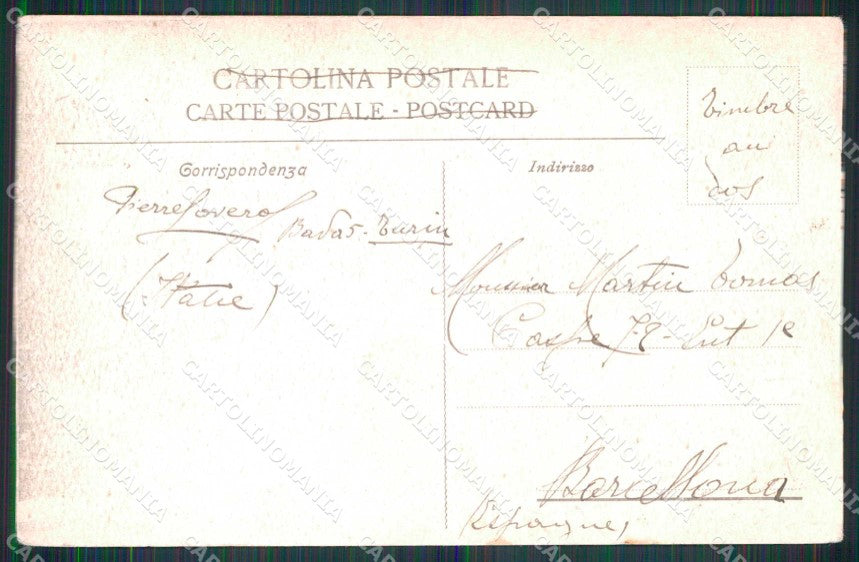 CARTOLINA POSTALE
CARTE POSTALE - POSTCARD
Timbre
au
dos
Corrispondenza
Indirizzo
Pierre
Turin
(Italie)
Monsieur Martin Tomas
Caspe 78 - Ent 1e
Barcellona
(Espagne)
CARTOLINOMANIA